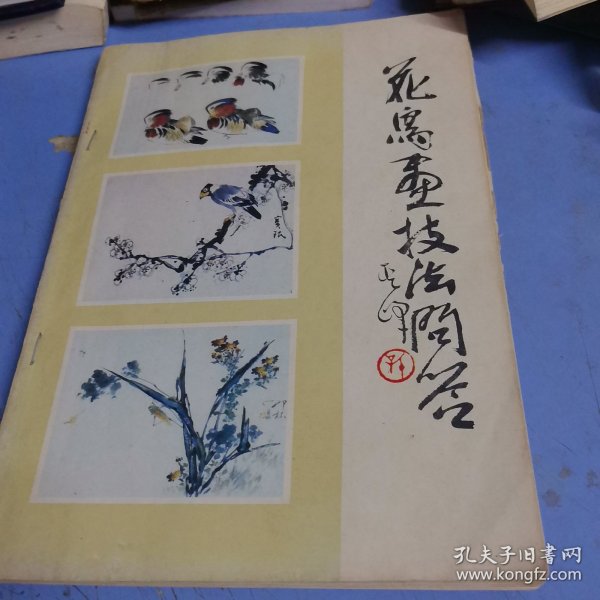 花鸟画技法问答
孔夫子旧书网
www.kongfz.com